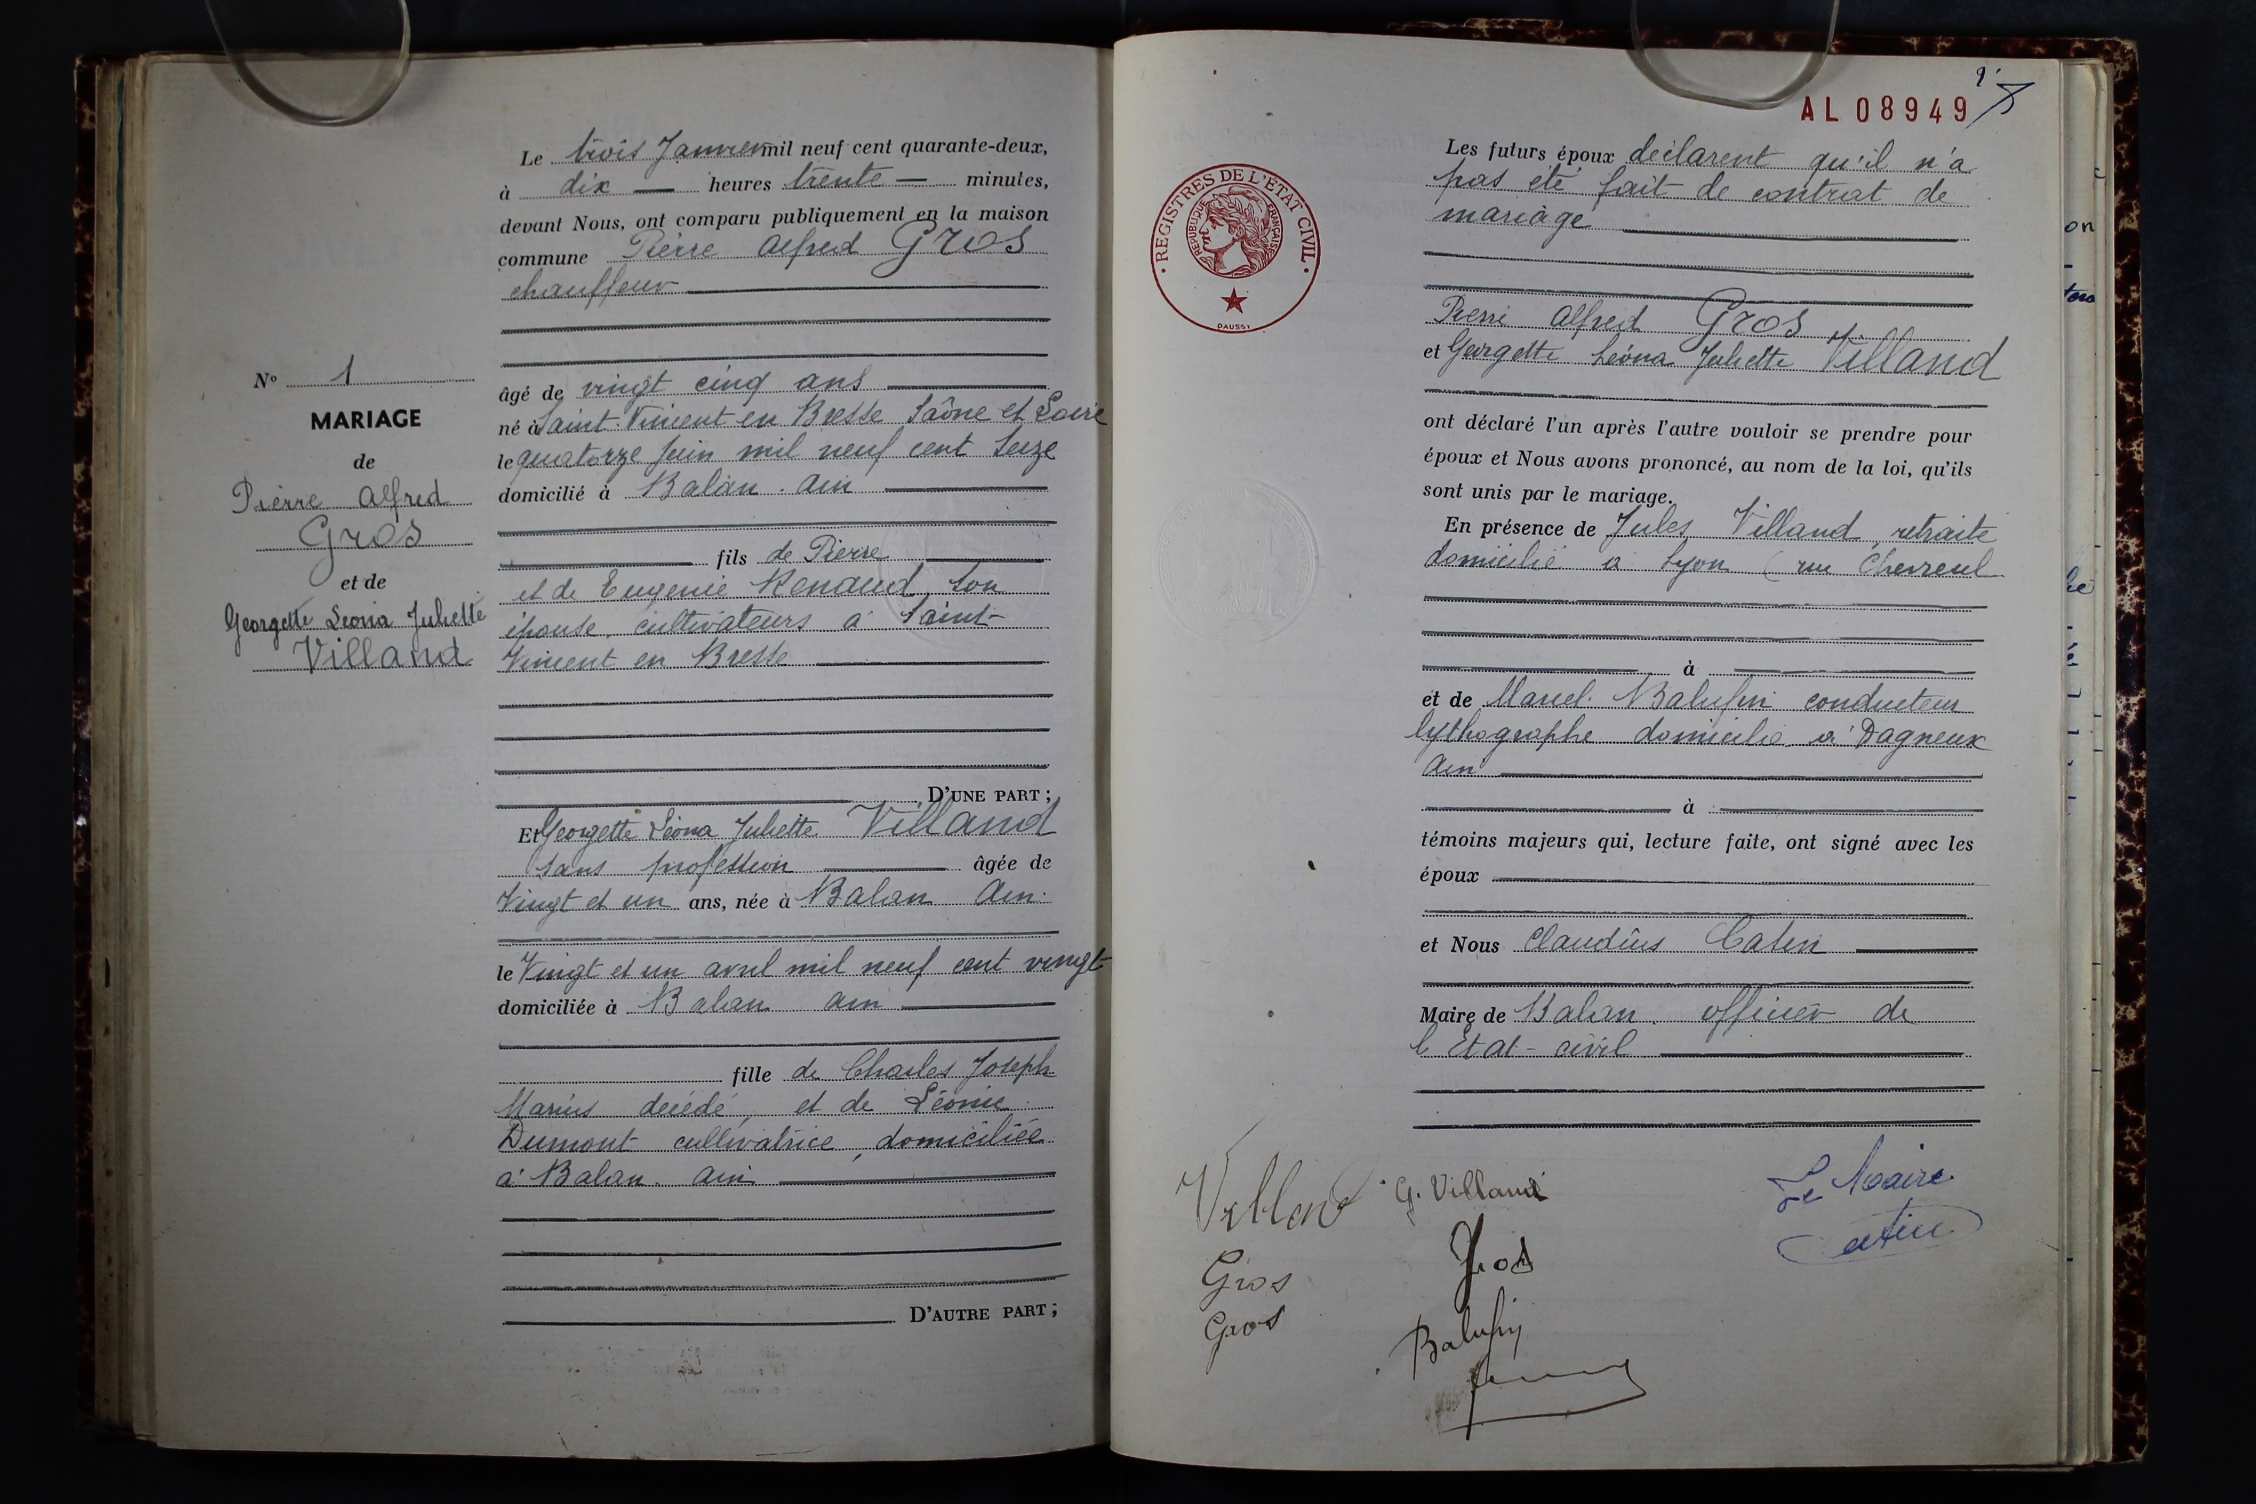 N° 1
MARIAGE
de
Pierre Alfred
Gros
et de
Georgette Léona Juliette
Villand
Le trois Janvier mil neuf cent quarante-deux,
à dix — heures trente — minutes,
devant Nous, ont comparu publiquement en la maison
commune Pierre Alfred Gros
chauffeur
âgé de vingt cinq ans
né à Saint-Vincent en Bresse Saône et Loire
le quatorze Juin mil neuf cent seize
domicilié à Balan. Ain
fils de Pierre
et de Eugenie Renaud son
épouse, cultivateurs à Saint-
Vincent en Bresse
D'UNE PART ;
Et Georgette Léona Juliette Villand
sans profession âgée de
Vingt et un ans, née à Balan Ain.
le Vingt et un avril mil neuf cent vingt
domiciliée à Balan Ain
fille de Charles Joseph
Marius décédé, et de Léonie
Dumont cultivatrice, domiciliée
à Balan. Ain
D'AUTRE PART ;
AL 08949
REGISTRES DE L'ÉTAT CIVIL
RÉPUBLIQUE FRANÇAISE
DAUSSY
Les futurs époux déclarent qu'il n'a
pas été fait de contrat de
mariage
Pierre Alfred Gros
et Georgette Léona Juliette Villand
ont déclaré l'un après l'autre vouloir se prendre pour
époux et Nous avons prononcé, au nom de la loi, qu'ils
sont unis par le mariage.
En présence de Jules Villand, retraité
domicilié à Lyon (rue Chevreul
à
et de Marcel Balufin conducteur
lythographe domicilié à Dagneux
Ain
à
témoins majeurs qui, lecture faite, ont signé avec les
époux
et Nous Claudius Catin
Maire de Balan. officier de
l'Etat-civil
Villand G. Villand
Le Maire
Catin
Gros Gros
Gros
Balufin